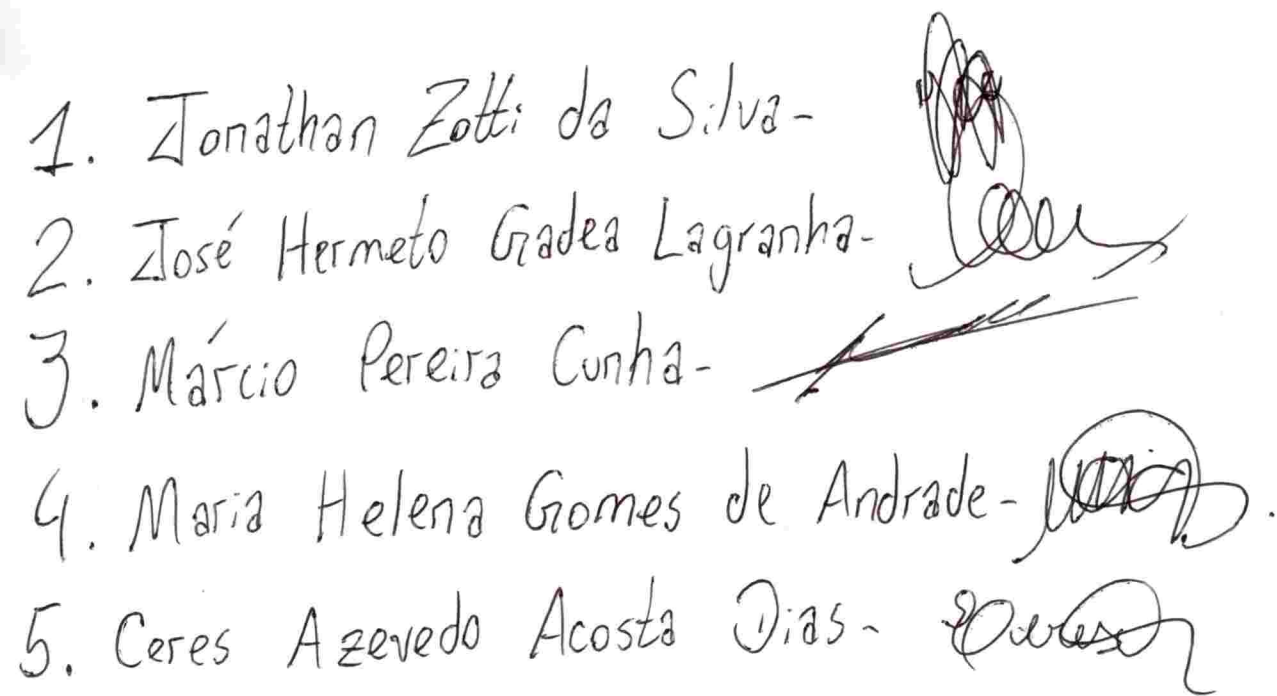 1. Jonathan Zotti da Silva-
2. José Hermeto Gadea Lagranha-
3. Márcio Pereira Cunha-
4. Maria Helena Gomes de Andrade-
5. Ceres Azevedo Acosta Dias-